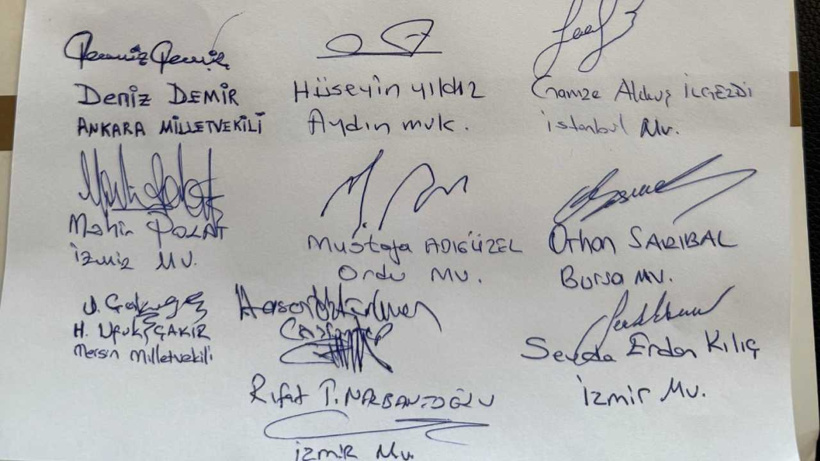 Deniz DEMİR
ANKARA MİLLETVEKİLİ
Hüseyin yıldız
Aydın mvk.
Gamze Akkuş İLGEZDİ
istanbul Mv.
Mahir POLAT
izmir Mv.
Mustafa ADIGÜZEL
Ordu Mv.
Orhan SARIBAL
Bursa Mv.
H. Ufuk ÇAKIR
Mersin Milletvekili
Sevda Erdan Kılıç
İzmir Mv.
Rıfat T. NALBANTOĞLU
İzmir Mv.